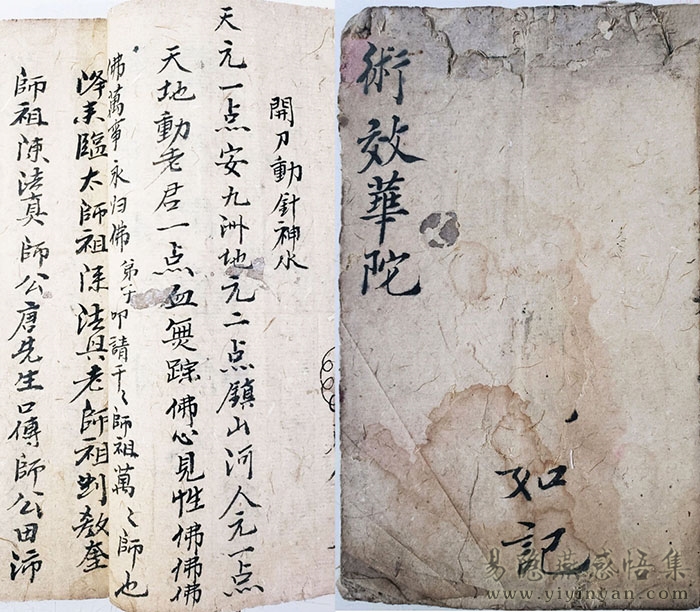 術效華陀
如記
開刀動針神水
天元一点安九洲地元二点鎮山河人元一点
天地動老君一点血無踪佛心見性佛佛佛
佛萬事永归佛弟子叩請千〻師祖萬〻師也
降来臨太師祖陈法具老師祖刘教奎
師祖陳法真師公唐先生口傳師公田沛
易隐燕感悟集
www.yiyintan.com